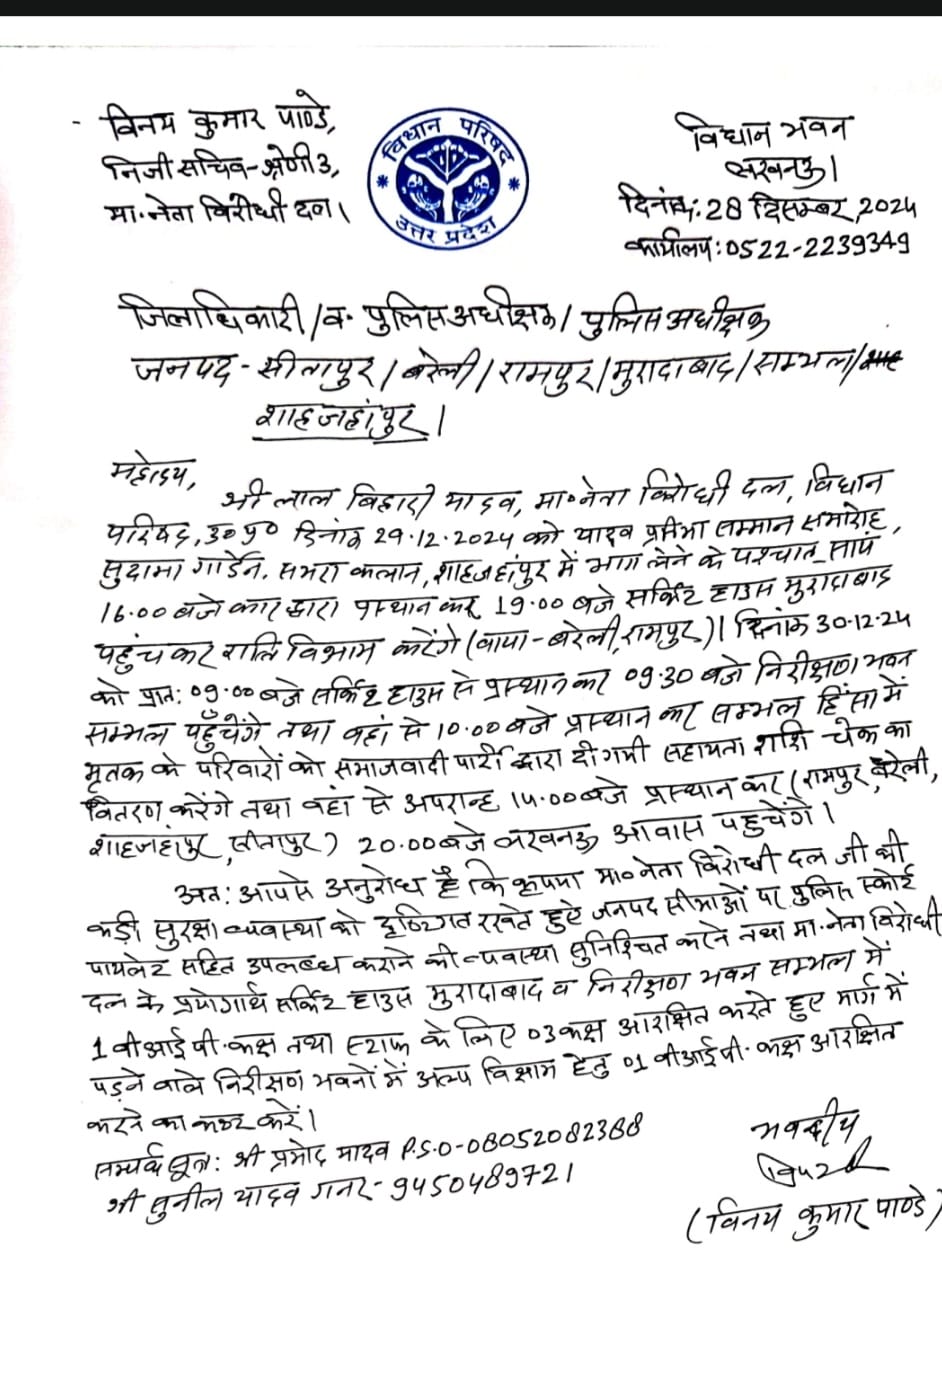 विनय कुमार पाण्डे,
निजी सचिव-श्रेणी3,
मा. नेता विरोधी दल।
विधान परिषद
उत्तर प्रदेश
विधान भवन
लखनऊ।
दिनांक: 28 दिसम्बर, 2024
कार्यालय: 0522-2239349
जिलाधिकारी/व. पुलिस अधीक्षक/ पुलिस अधीक्षक
जनपद - सीतापुर/बरेली/रामपुर/मुरादाबाद/सम्भल/
शाहजहांपुर।
महोदय,
श्री लाल बिहारी यादव, मा० नेता विरोधी दल, विधान
परिषद, उ० प्र० दिनांक 29.12.2024 को यादव प्रतिभा सम्मान समारोह,
सुदामा गार्डेन, कलान, शाहजहांपुर में भाग लेने के पश्चात सायं
16.00 बजे कार द्वारा प्रस्थान कर 19.00 बजे सर्किट हाउस मुरादाबाद
पहुंचकर रात्रि विश्राम करेंगे (वाया-बरेली, रामपुर)। दिनांक 30.12.24
को प्रात: 09.00 बजे सर्किट हाउस से प्रस्थान कर 09.30 बजे निरीक्षण भवन
सम्भल पहुँचेंगे तथा वहां से 10.00 बजे प्रस्थान कर सम्भल हिंसा में
मृतक के परिवारों को समाजवादी पार्टी द्वारा दी गयी सहायता राशि चेक का
वितरण करेंगे तथा वहां से अपरान्ह 14.00 बजे प्रस्थान कर (रामपुर, बरेली,
शाहजहांपुर, सीतापुर) 20.00 बजे लखनऊ आवास पहुचेंगे।
अत: आपसे अनुरोध है कि कृपया मा० नेता विरोधी दल जी की
कड़ी सुरक्षा व्यवस्था को दृष्टिगत रखते हुए जनपद सीमाओं पर पुलिस स्कोर्ट
पायलेट सहित उपलब्ध कराने की व्यवस्था सुनिश्चित करने तथा मा. नेता विरोधी
दल के प्रयोगार्थ सर्किट हाउस मुरादाबाद व निरीक्षण भवन सम्भल में
1 वीआईपी. कक्ष तथा स्टाफ के लिए 03 कक्ष आरक्षित करते हुए मार्ग में
पड़ने वाले निरीक्षण भवनों में अल्प विश्राम हेतु 01 वीआईपी. कक्ष आरक्षित
करने का कष्ट करें।
सम्पर्क सूत्र: श्री प्रमोद यादव P.S.O-08052082388
श्री सुनील यादव गनर- 9450489721
भवदीय
(विनय कुमार पाण्डे)